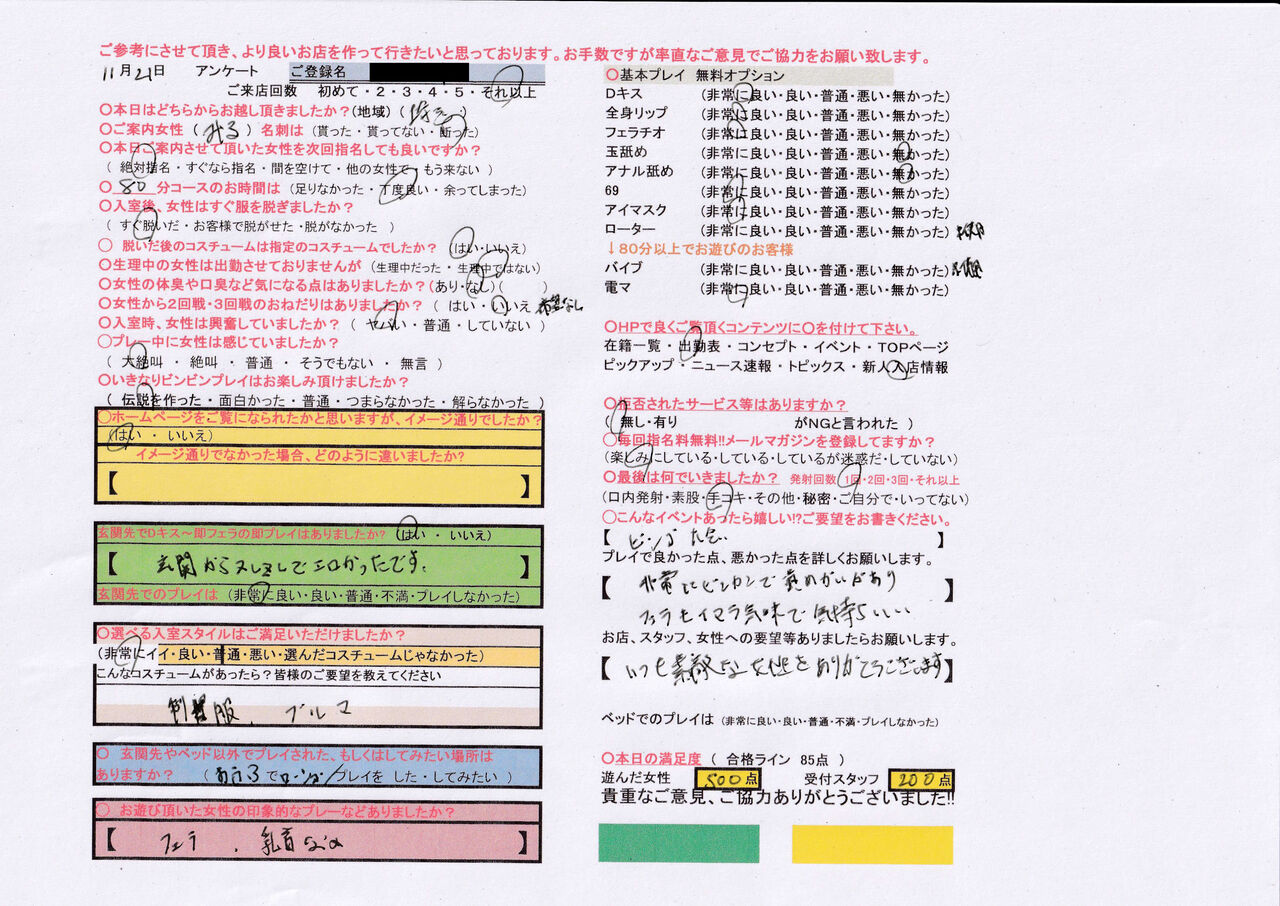 ご参考にさせて頂き、より良いお店を作って行きたいと思っております。お手数ですが率直なご意見でご協力をお願い致します。
11月21日 アンケート ご登録名
ご来店回数 初めて・2・3・4・5・それ以上
〇本日はどちらからお越し頂きましたか?(地域)( )
〇ご案内女性( みる )名刺は(貰った・貰ってない・断った)
〇本日ご案内させて頂いた女性を次回指名しても良いですか?
( 絶対指名・すぐなら指名・間を空けて・他の女性で・もう来ない )
〇 80 分コースのお時間は(足りなかった・丁度良い・余ってしまった)
〇入室後、女性はすぐ服を脱ぎましたか?
( すぐ脱いだ・お客様で脱がせた・脱がなかった )
〇 脱いだ後のコスチュームは指定のコスチュームでしたか?(はい・いいえ)
〇生理中の女性は出勤させておりませんが(生理中だった・生理中ではない)
〇女性の体臭や口臭など気になる点はありましたか?(あり・なし)( )
〇女性から2回戦・3回戦のおねだりはありましたか?( はい・いいえ 希望なし
〇入室時、女性は興奮していましたか?( ヤバい・普通・していない )
〇プレー中に女性は感じていましたか?
( 大絶叫 ・ 絶叫 ・ 普通 ・ そうでもない ・ 無言 )
〇いきなりビンビンプレイはお楽しみ頂けましたか?
( 伝説を作った・面白かった・普通・つまらなかった・解らなかった )
〇ホームページをご覧になられたかと思いますが、イメージ通りでしたか?
(はい ・ いいえ)
イメージ通りでなかった場合、どのように違いましたか?
【 】
玄関先でDキス～即フェラの即プレイはありましたか? (はい ・ いいえ)
【 玄関から してエロかったです。 】
玄関先でのプレイは (非常に良い・良い・普通・不満・プレイしなかった)
〇選べる入室スタイルはご満足いただけましたか?
(非常にイイ・良い・普通・悪い・選んだコスチュームじゃなかった)
こんなコスチュームがあったら?皆様のご要望を教えてください
制服、ブルマ
〇 玄関先やベッド以外でプレイされた、もしくはしてみたい場所は
ありますか? ( おふろでローション プレイを した・してみたい )
〇 お遊び頂いた女性の印象的なプレーなどありましたか?
【 フェラ 、乳首なめ 】
〇基本プレイ 無料オプション
Dキス (非常に良い・良い・普通・悪い・無かった)
全身リップ (非常に良い・良い・普通・悪い・無かった)
フェラチオ (非常に良い・良い・普通・悪い・無かった)
玉舐め (非常に良い・良い・普通・悪い・無かった)
アナル舐め (非常に良い・良い・普通・悪い・無かった)
69 (非常に良い・良い・普通・悪い・無かった)
アイマスク (非常に良い・良い・普通・悪い・無かった)
ローター (非常に良い・良い・普通・悪い・無かった)
↓80分以上でお遊びのお客様
バイブ (非常に良い・良い・普通・悪い・無かった)
電マ (非常に良い・良い・普通・悪い・無かった)
〇HPで良くご覧頂くコンテンツに〇を付けて下さい。
在籍一覧・出勤表・コンセプト・イベント・TOPページ
ピックアップ・ニュース速報・トピックス・新人入店情報
〇拒否されたサービス等はありますか?
( 無し・有り がNGと言われた )
〇毎回指名料無料!!メールマガジンを登録してますか?
(楽しみにしている・している・しているが迷惑だ・していない)
〇最後は何でいきましたか? 発射回数 1回・2回・3回・それ以上
(口内発射・素股・手コキ・その他・秘密・ご自分で・いってない)
〇こんなイベントあったら嬉しい!?ご要望をお書きください。
【 ビンゴ大会 】
プレイで良かった点、悪かった点を詳しくお願いします。
【 非常にビンカンで責めがいがあり
フェラもイマラ気味で気持ちいい 】
お店、スタッフ、女性への要望等ありましたらお願いします。
【 いつも素敵な女性をありがとうございます 】
ベッドでのプレイは (非常に良い・良い・普通・不満・プレイしなかった)
〇本日の満足度 ( 合格ライン 85点 )
遊んだ女性 500点 受付スタッフ 200点
貴重なご意見、ご協力ありがとうございました!!